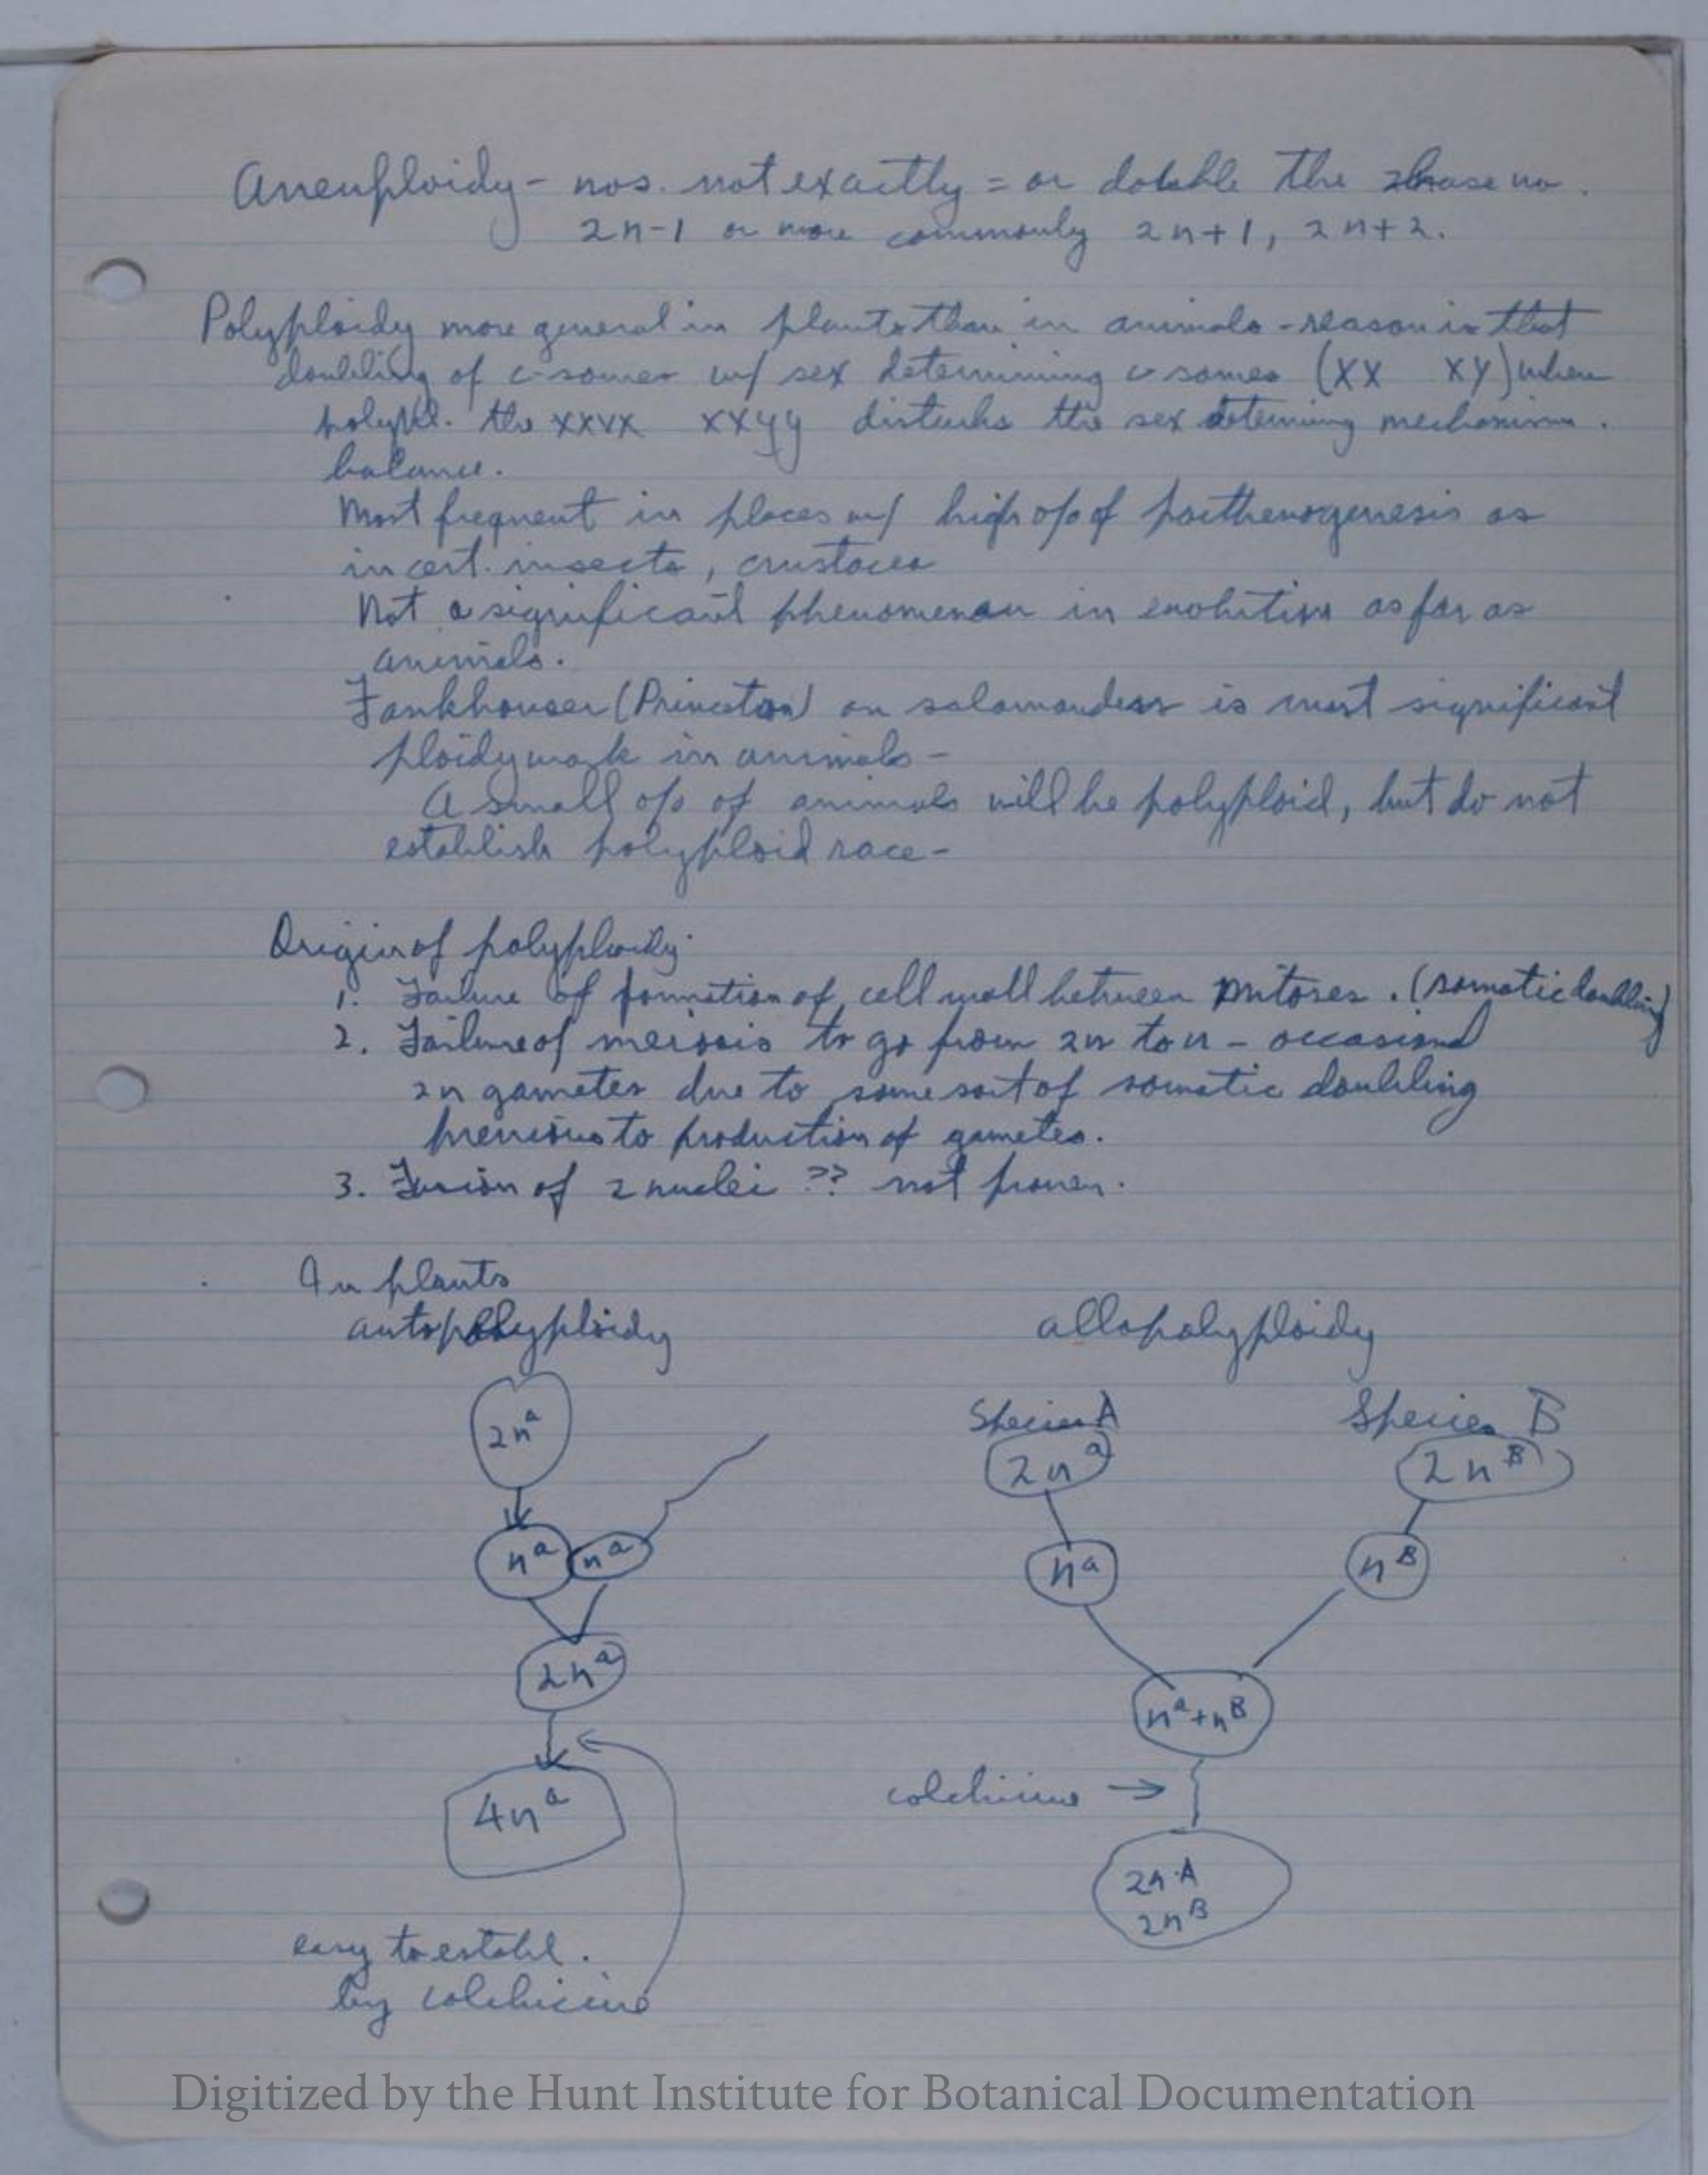 Aneuploidy - nos. not exactly = or double the base no.
2n-1 or more commonly 2n+1, 2n+2.
Polyploidy more general in plants than in animals - reason is that
doubling of c-somes w/ sex determining c-somes (XX XY) when
polypl. the XXXX XXYY disturbs the sex determing mechanism.
balance.
Most frequent in places w/ high o/o of parthenogenesis as
in cert. insects, crustacea
Not a significant phenomenon in evolution as far as
animals.
Fankhouser (Princeton) on salamanders is most significant
ploidy work in animals -
A small o/o of animals will be polyploid, but do not
establish polyploid race -
Origin of polyploidy:
1. Failure of formation of cell wall between mitoses. (somatic doubling)
2. Failure of meiosis to go from 2n to n - occasional
2n gametes due to some sort of somatic doubling
previous to production of gametes.
3. Fusion of 2 nuclei ?? not proven.
In plants
autopolyploidy allopolyploidy
Species A Species B
2n^a 2n^a 2n^B
n^a n^a n^a n^B
2n^a
n^a+n^B
colchicine →
4n^a
2n A
2n^B
easy to establ.
by colchicine
Digitized by the Hunt Institute for Botanical Documentation